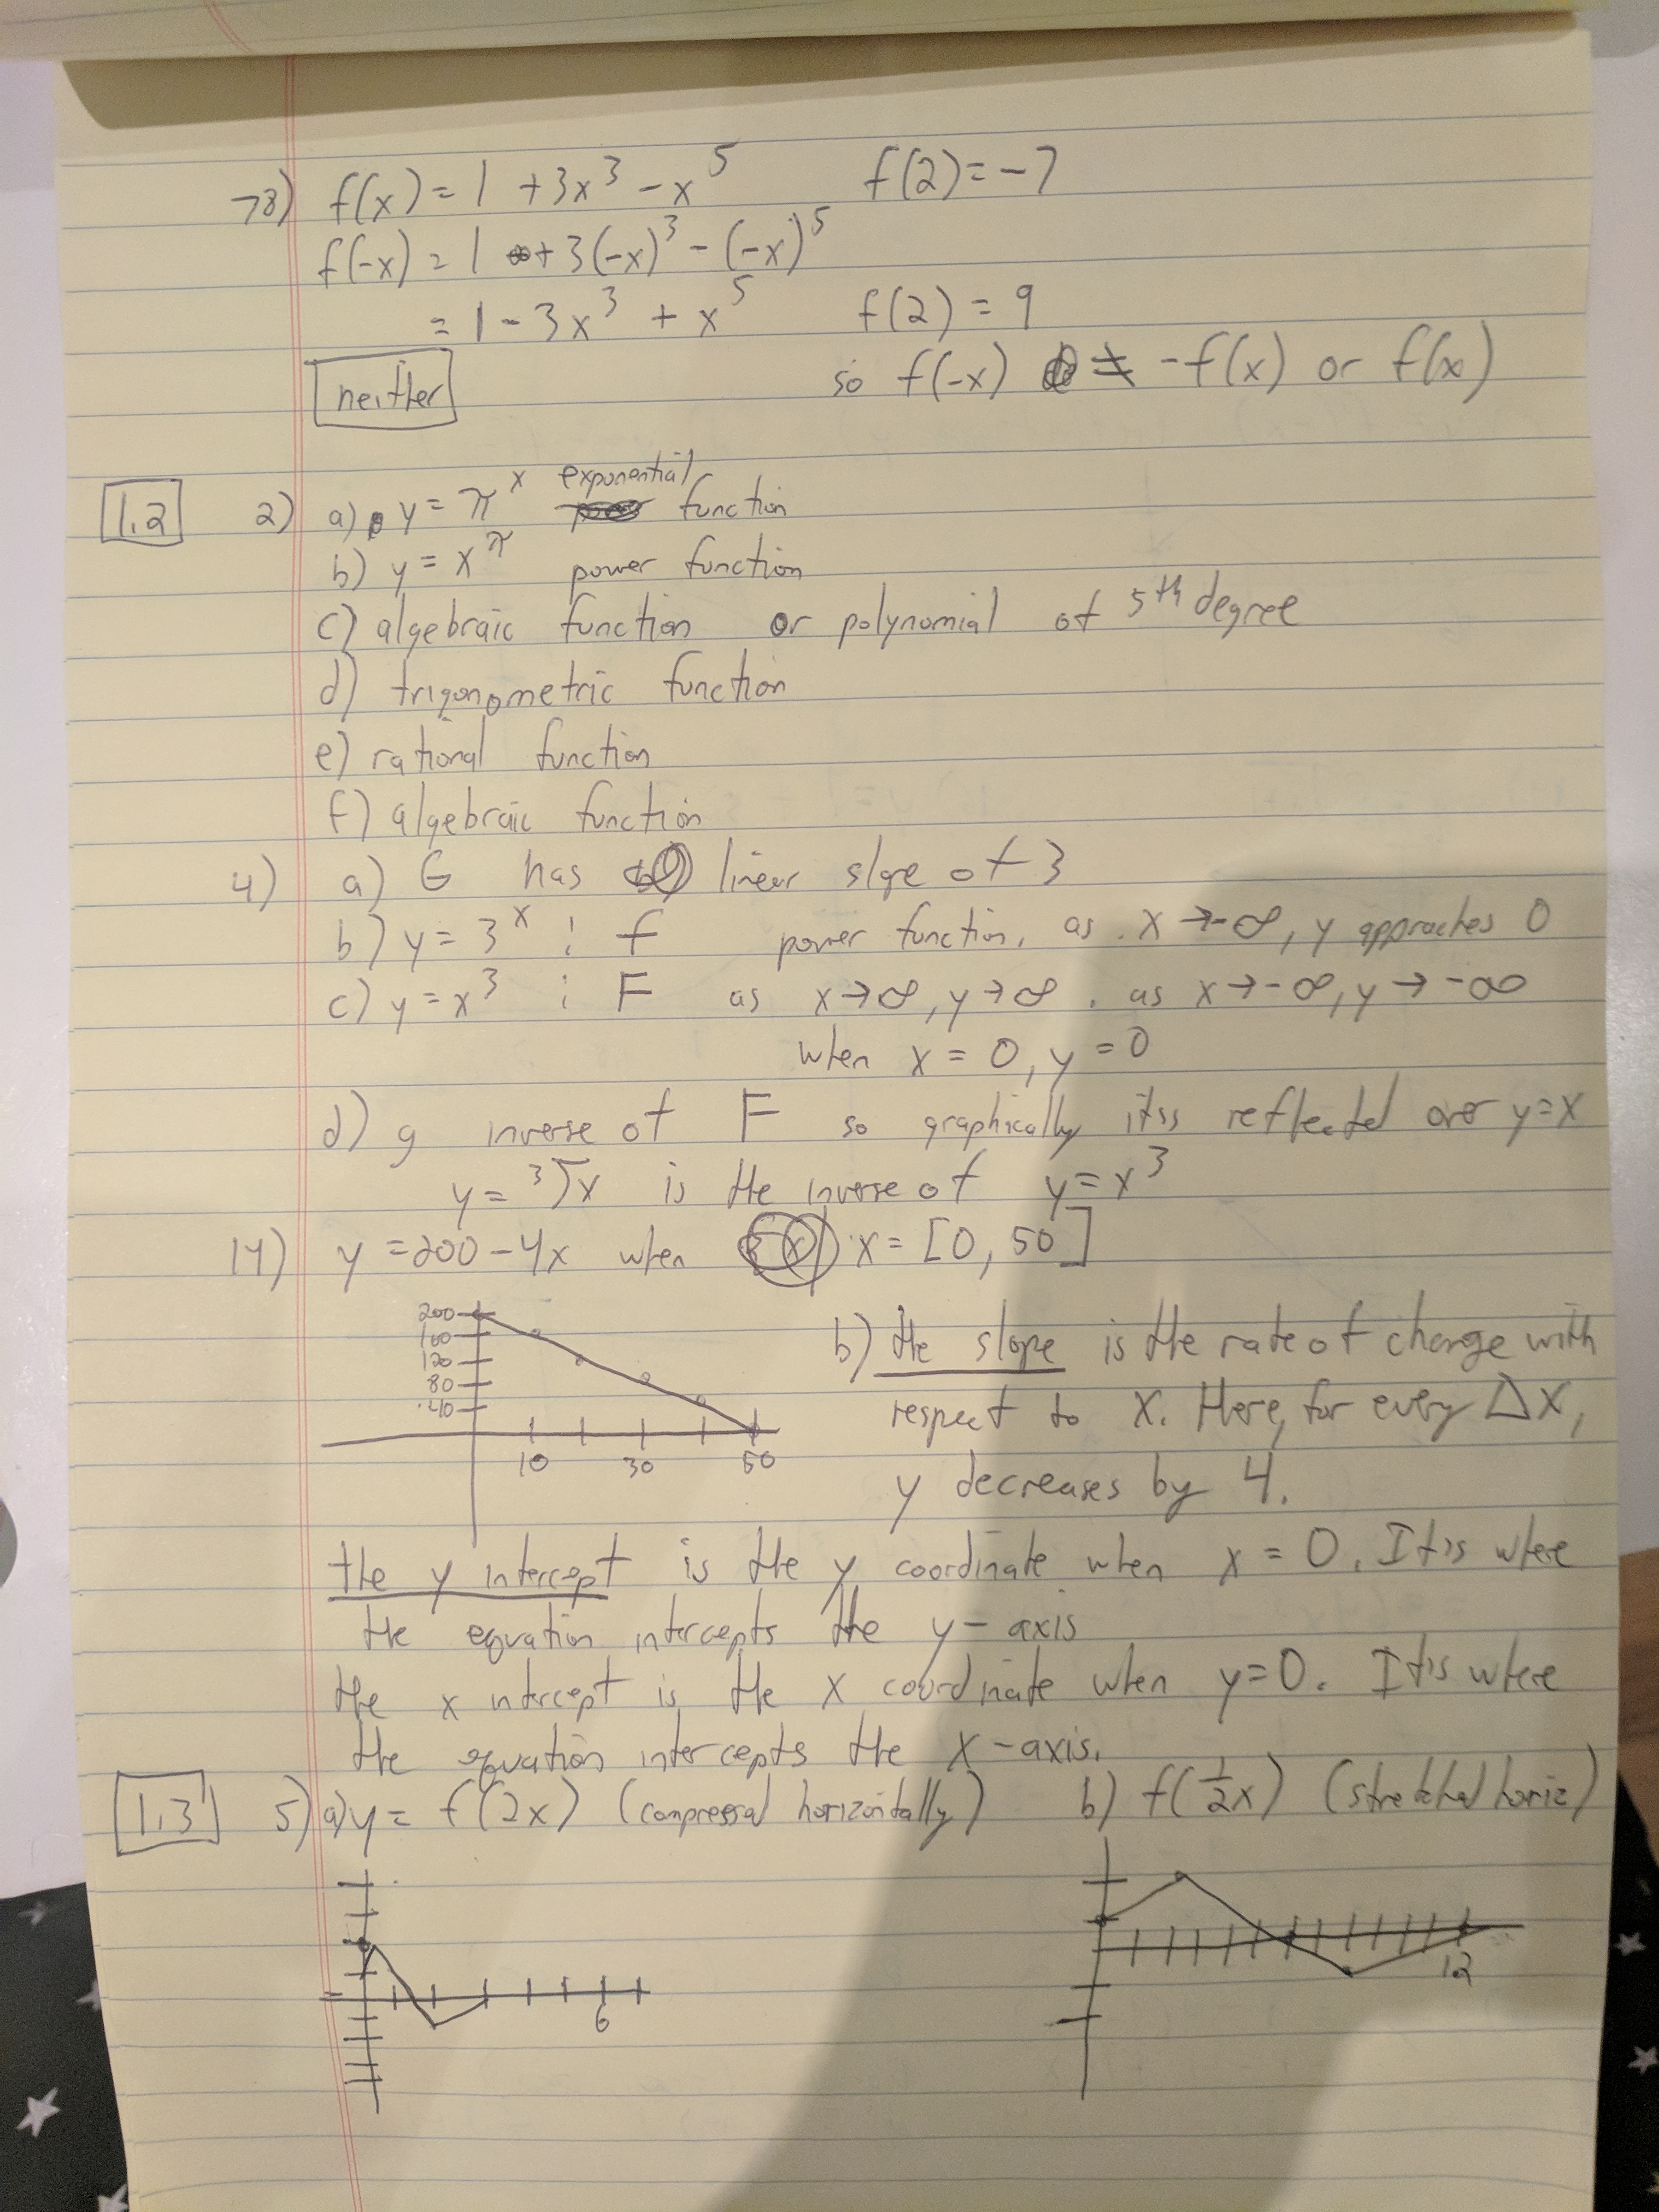 78) f(x) = 1 + 3x³ - x⁵ f(2) = -7
f(-x) = 1 + 3(-x)³ - (-x)⁵
= 1 - 3x³ + x⁵ f(2) = 9
neither so f(-x) ≠ -f(x) or f(x)
1.2 2) a) y = π^x exponential function
b) y = x^π power function
c) algebraic function or polynomial of 5th degree
d) trigonometric function
e) rational function
f) algebraic function
4) a) G has linear slope of 3
b) y = 3^x : f power function, as x → -∞, y approaches 0
c) y = x³ : F as x → ∞, y → ∞. as x → -∞, y → -∞
when x = 0, y = 0
d) g inverse of F so graphically it's reflected over y = x
y = ³√x is the inverse of y = x³
14) y = 200 - 4x when x = [0, 50]
200
160
120
80
40
10 30 50
b) the slope is the rate of change with
respect to x. Here, for every Δx,
y decreases by 4.
the y intercept is the y coordinate when x = 0. It is where
the equation intercepts the y-axis
the x intercept is the x coordinate when y = 0. It is where
the equation intercepts the x-axis.
1.3 5) a) y = f(2x) (compressed horizontally) b) f(½x) (stretched horiz)
6 12